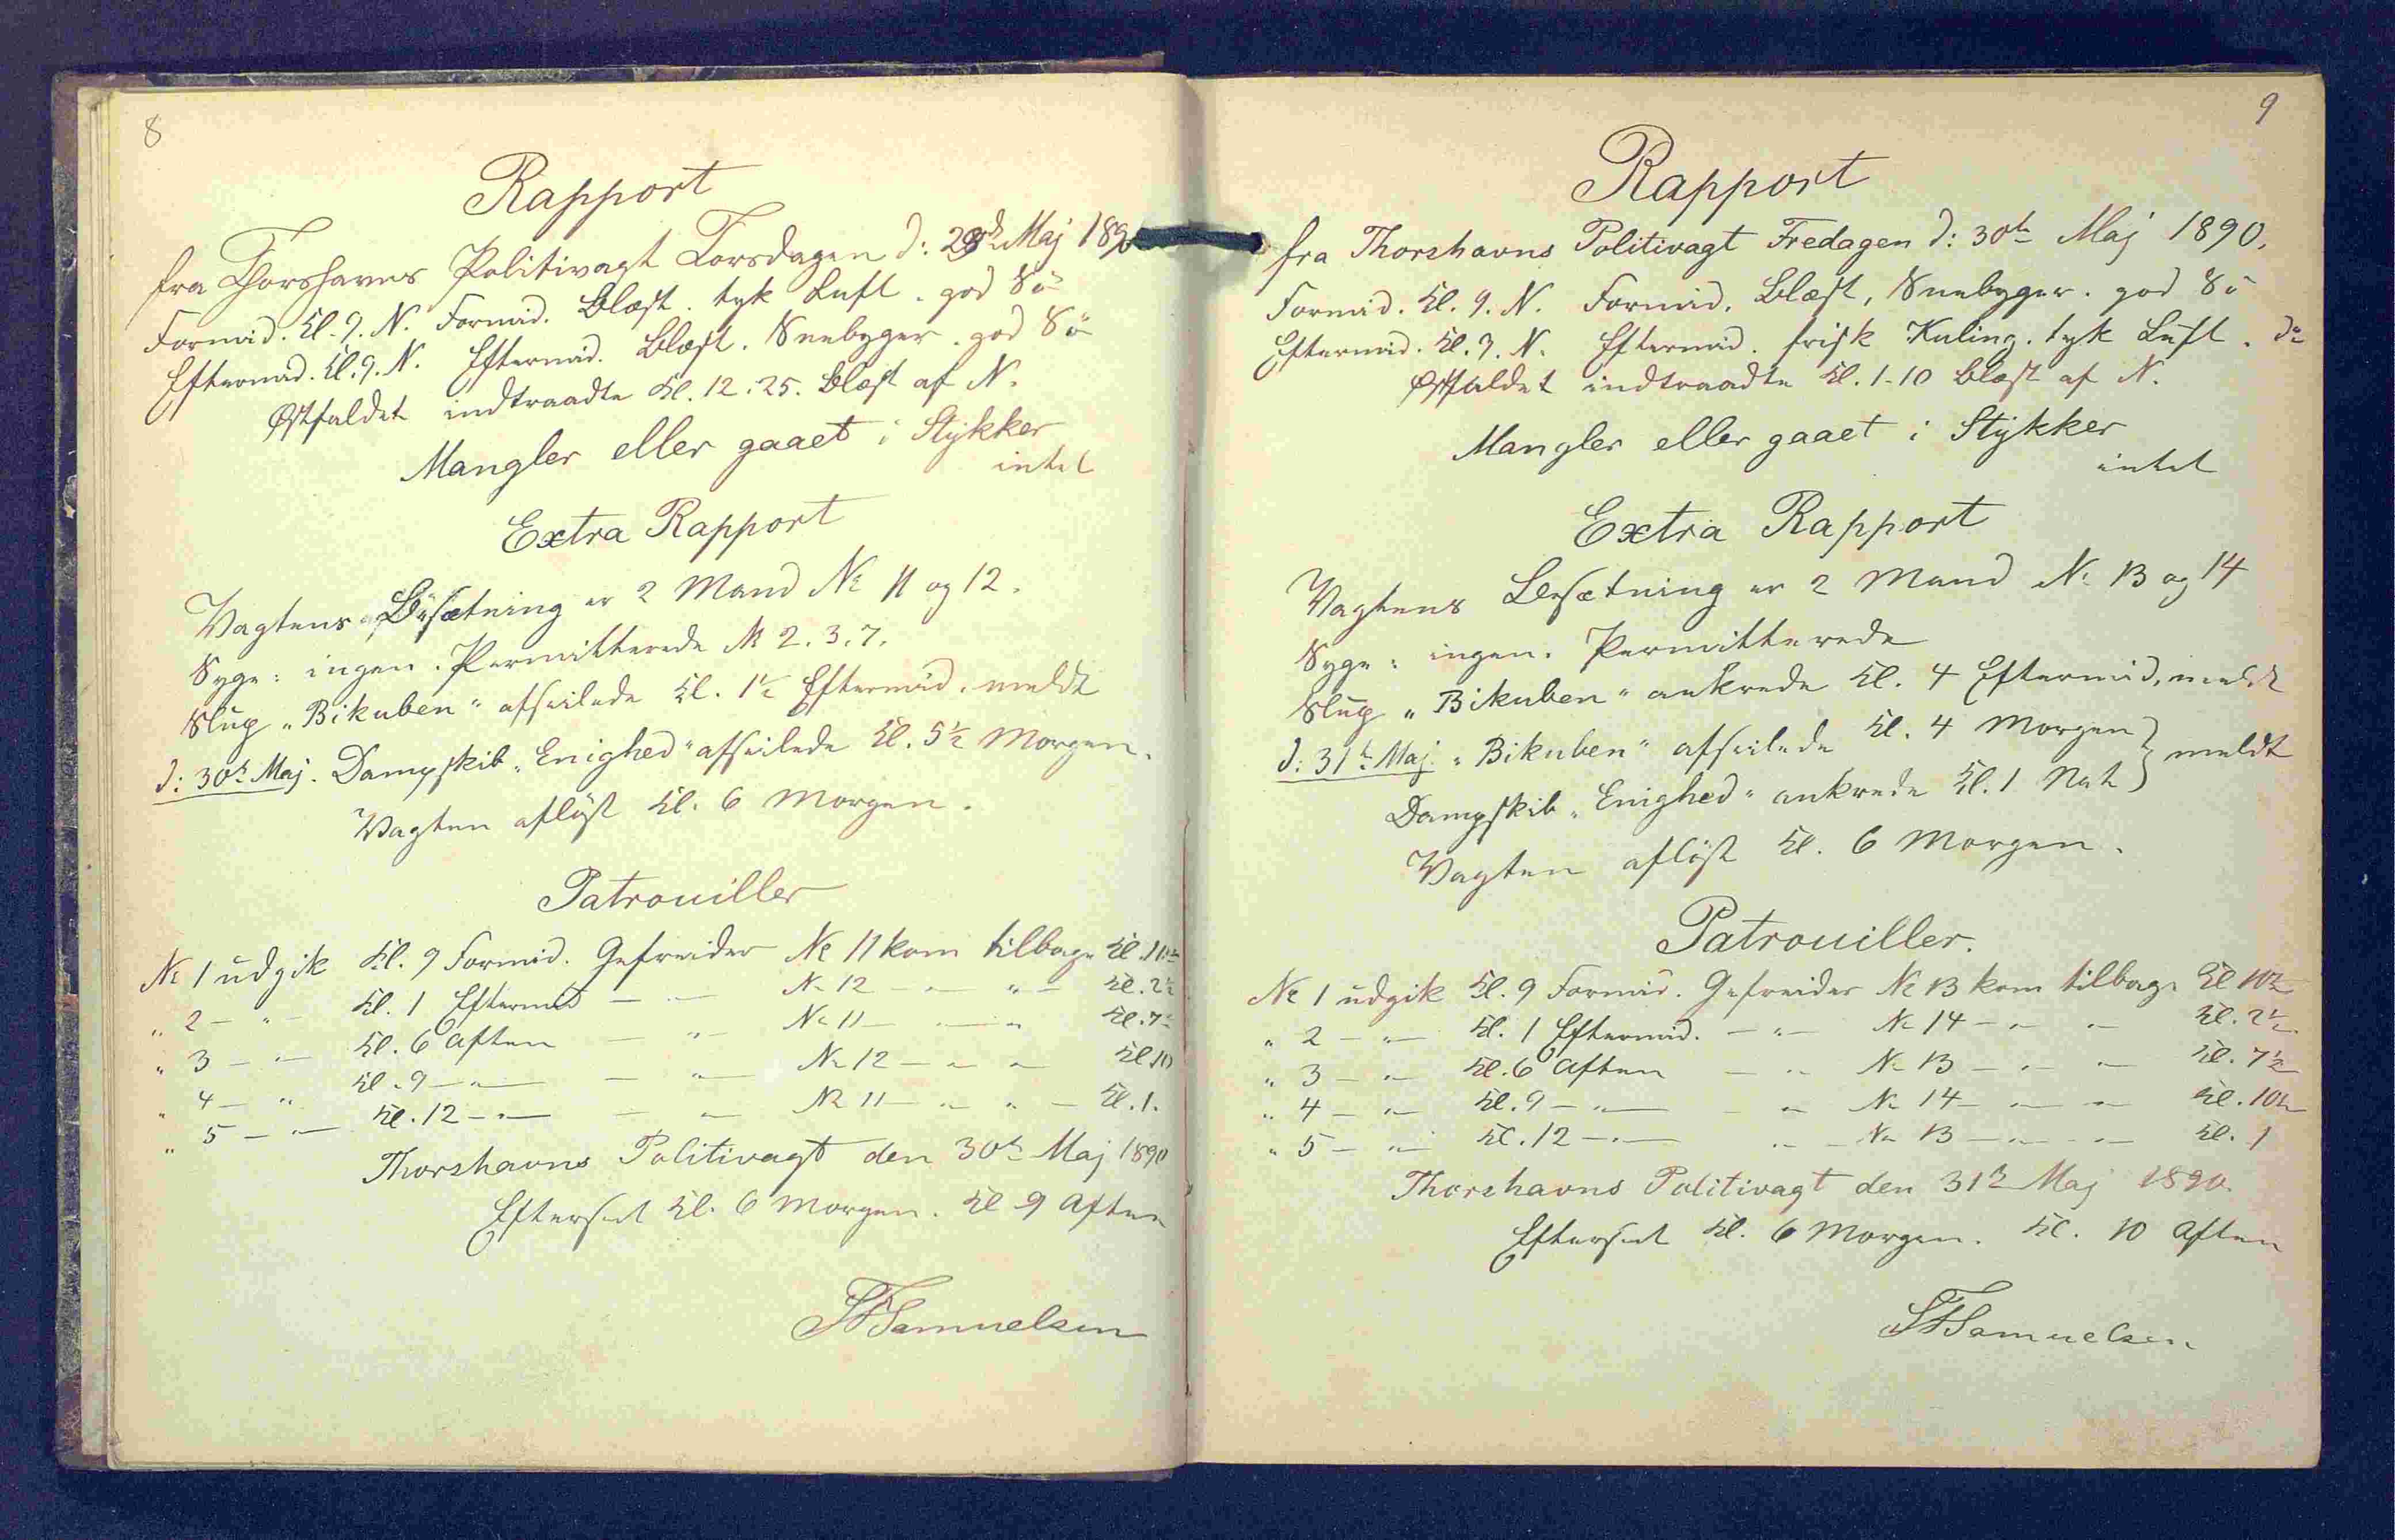 8
Rapport
fra Thorshavns Politivagt Torsdagen d: 29de Maj 1890
Formid. Kl. 9. N. Formid. Blæst. tyk Luft. god Sö
Eftermid. Kl. 9. N. Eftermid. Blæst. Snebyger. god Sö
Østfaldet indtraadte Kl. 12.25. Blæst af N.
Mangler eller gaaet i Stykker
intet
Extra Rapport
Vagtens Besætning er 2 Mand No 11 og 12.
Syge: ingen. Permitterede No 2. 3. 7.
Slup „Bikuben“ afseilede Kl. 1½ Eftermid. meldt
d: 30te Maj. Dampskib „Enighed“ afseilede Kl. 5½ Morgen.
Vagten aflöst Kl. 6 Morgen.
Patrouiller
No 1 udgik Kl. 9 Formid. Gefreider No 11 kom tilbage Kl. 11½
„ 2 — „ — Kl. 1 Eftermid — „ — No 12 — „ — „ — Kl. 2½
„ 3 — „ — Kl. 6 Aften — „ — No 11 — „ — „ Kl. 7½
„ 4 — „ Kl. 9 — „ — — „ — No 12 — „ — „ Kl 10
„ 5 — „ — Kl. 12 — „ — — „ — No 11 — „ — „ — Kl. 1.
Thorshavns Politivagt den 30te Maj 1890
Efterseet Kl. 6 Morgen. Kl 9 Aften
Samuelsen
9
Rapport
fra Thorshavns Politivagt Fredagen d: 30te Maj 1890.
Formid. Kl. 9. N. Formid. Blæst, Snebyger. god Sö
Eftermid. Kl. 9. N. Eftermid. frisk Kuling. tyk Luft. do
Østfaldet indtraadte Kl. 1-10 Blæst af N.
Mangler eller gaaet i Stykker
intet
Extra Rapport
Vagtens Besætning er 2 Mand No 13 og 14
Syge: ingen. Permitterede
Slup „Bikuben“ ankrede Kl. 4 Eftermid, meldt
d: 31te Maj. „Bikuben“ afseilede Kl. 4 Morgen } meldt
Dampskib „Enighed“ ankrede Kl. 1 Nat
Vagten aflöst Kl. 6 Morgen.
Patrouiller.
No 1 udgik Kl. 9 Formid. Gefreider No 13 kom tilbage Kl 10½
„ 2 — „ — Kl. 1 Eftermid. — „ — No 14 — „ — „ — Kl. 2½.
„ 3 — „ — Kl. 6 Aften — „ — No 13 — „ — „ — Kl. 7½
„ 4 — „ — Kl. 9 — „ — — „ — No 14 — „ — „ — Kl. 10½
„ 5 — „ — Kl. 12 — „ — „ — No 13 — „ — „ — Kl. 1
Thorshavns Politivagt den 31te Maj 1890.
Efterseet Kl. 6 Morgen. Kl. 10 Aften
Samuelsen